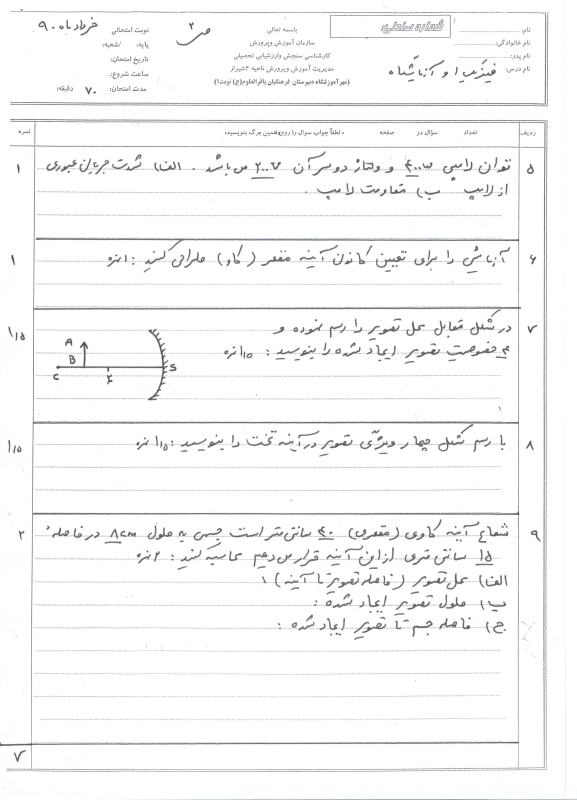 نام:
نام خانوادگی:
نام پدر:
نام درس: فیزیک ۱ و آزمایشگاه
شماره صندلی:
باسمه تعالی
سازمان آموزش و پرورش
کارشناسی سنجش وارزشیابی تحصیلی
مدیریت آموزش وپرورش ناحیه ۳شیراز
(مهرآموزشگاه دبیرستان فرهنگیان باقرالعلوم(ع) نوبت۱)
ص ۲
نوبت امتحانی: خرداد ماه ۹۰
پایه: /شعبه:
تاریخ امتحان:
ساعت شروع:
مدت امتحان: ۷۰ دقیقه:
ردیف تعداد سؤال در صفحه «لطفاً جواب سوال را روی همین برگ بنویسید» نمره
۵ توان لامپی ۴۰۰w و ولتاژ دو سر آن ۲۰۰v می باشد. الف) شدت جریان عبوری ۱
از لامپ ب) مقاومت لامپ.
۶ آزمایشی را برای تعیین کانون آینه مقعر (کاو) طراحی کنید: ۱نمره ۱
۷ در شکل مقابل محل تصویر را رسم نموده و ۱/۵
۳ خصوصیت تصویر ایجاد شده را بنویسید: ۱/۵نمره
A
B
C
F
S
۸ با رسم شکل چهار ویژگی تصویر در آینه تخت را بنویسید: ۱/۵نمره ۱/۵
۹ شعاع آینه کاوی (مقعری) ۴۰ سانتی متر است جسمی به طول ۸cm در فاصلهٔ ۲
۱۵ سانتی متری از این آینه قرار می دهیم محاسبه کنید: ۲نمره
الف) محل تصویر (فاصله تصویر تا آینه):
ب) طول تصویر ایجاد شده:
ج) فاصله جسم تا تصویر ایجاد شده:
۷